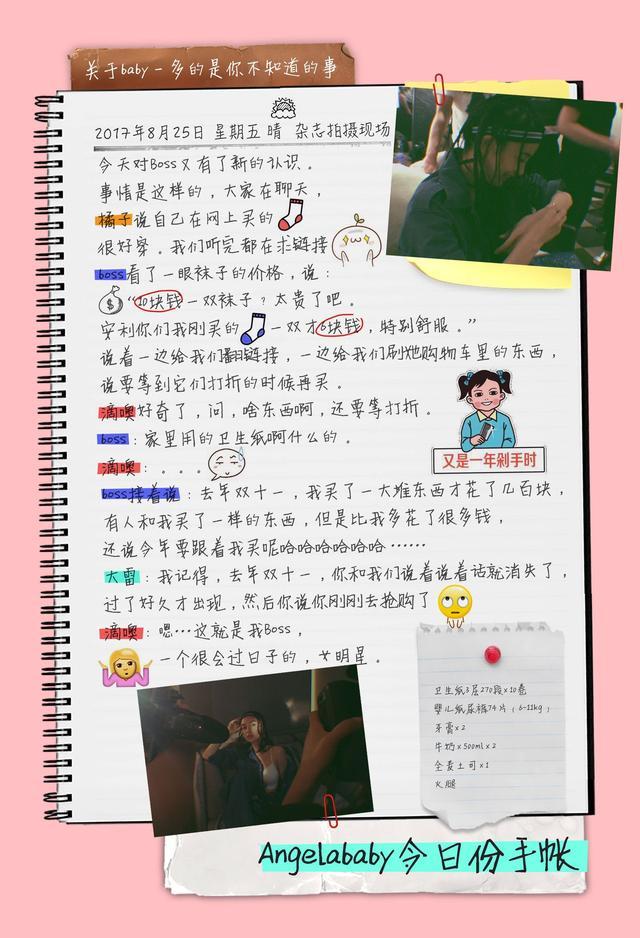 关于baby-多的是你不知道的事
2017年8月25日 星期五 晴 杂志拍摄现场
今天对Boss又有了新的认识。
事情是这样的，大家在聊天，
橘子说自己在网上买的
很好穿。我们听完都在求链接
boss看了一眼袜子的价格，说：
$
“10块钱一双袜子？太贵了吧。
安利你们我刚买的 一双才6块钱，特别舒服。”
说着一边给我们翻链接，一边给我们刷她购物车里的东西，
说要等到它们打折的时候再买。
滴噢好奇了，问，啥东西啊，还要等打折。
boss：家里用的卫生纸啊什么的。
又是一年剁手时
滴噢：。。。
boss接着说：去年双十一，我买了一大堆东西才花了几百块，
有人和我买了一样的东西，但是比我多花了很多钱，
还说今年要跟着我买呢哈哈哈哈哈哈……
大雷：我记得，去年双十一，你和我们说着说着话就消失了，
过了好久才出现，然后你说你刚刚去抢购了
滴噢：嗯…这就是我Boss，
一个很会过日子的，女明星。
卫生纸3层270段×10卷
婴儿纸尿裤74片（6-11kg）
牙膏×2
牛奶×500ml×2
全麦土司×1
火腿
Angelababy今日份手帐